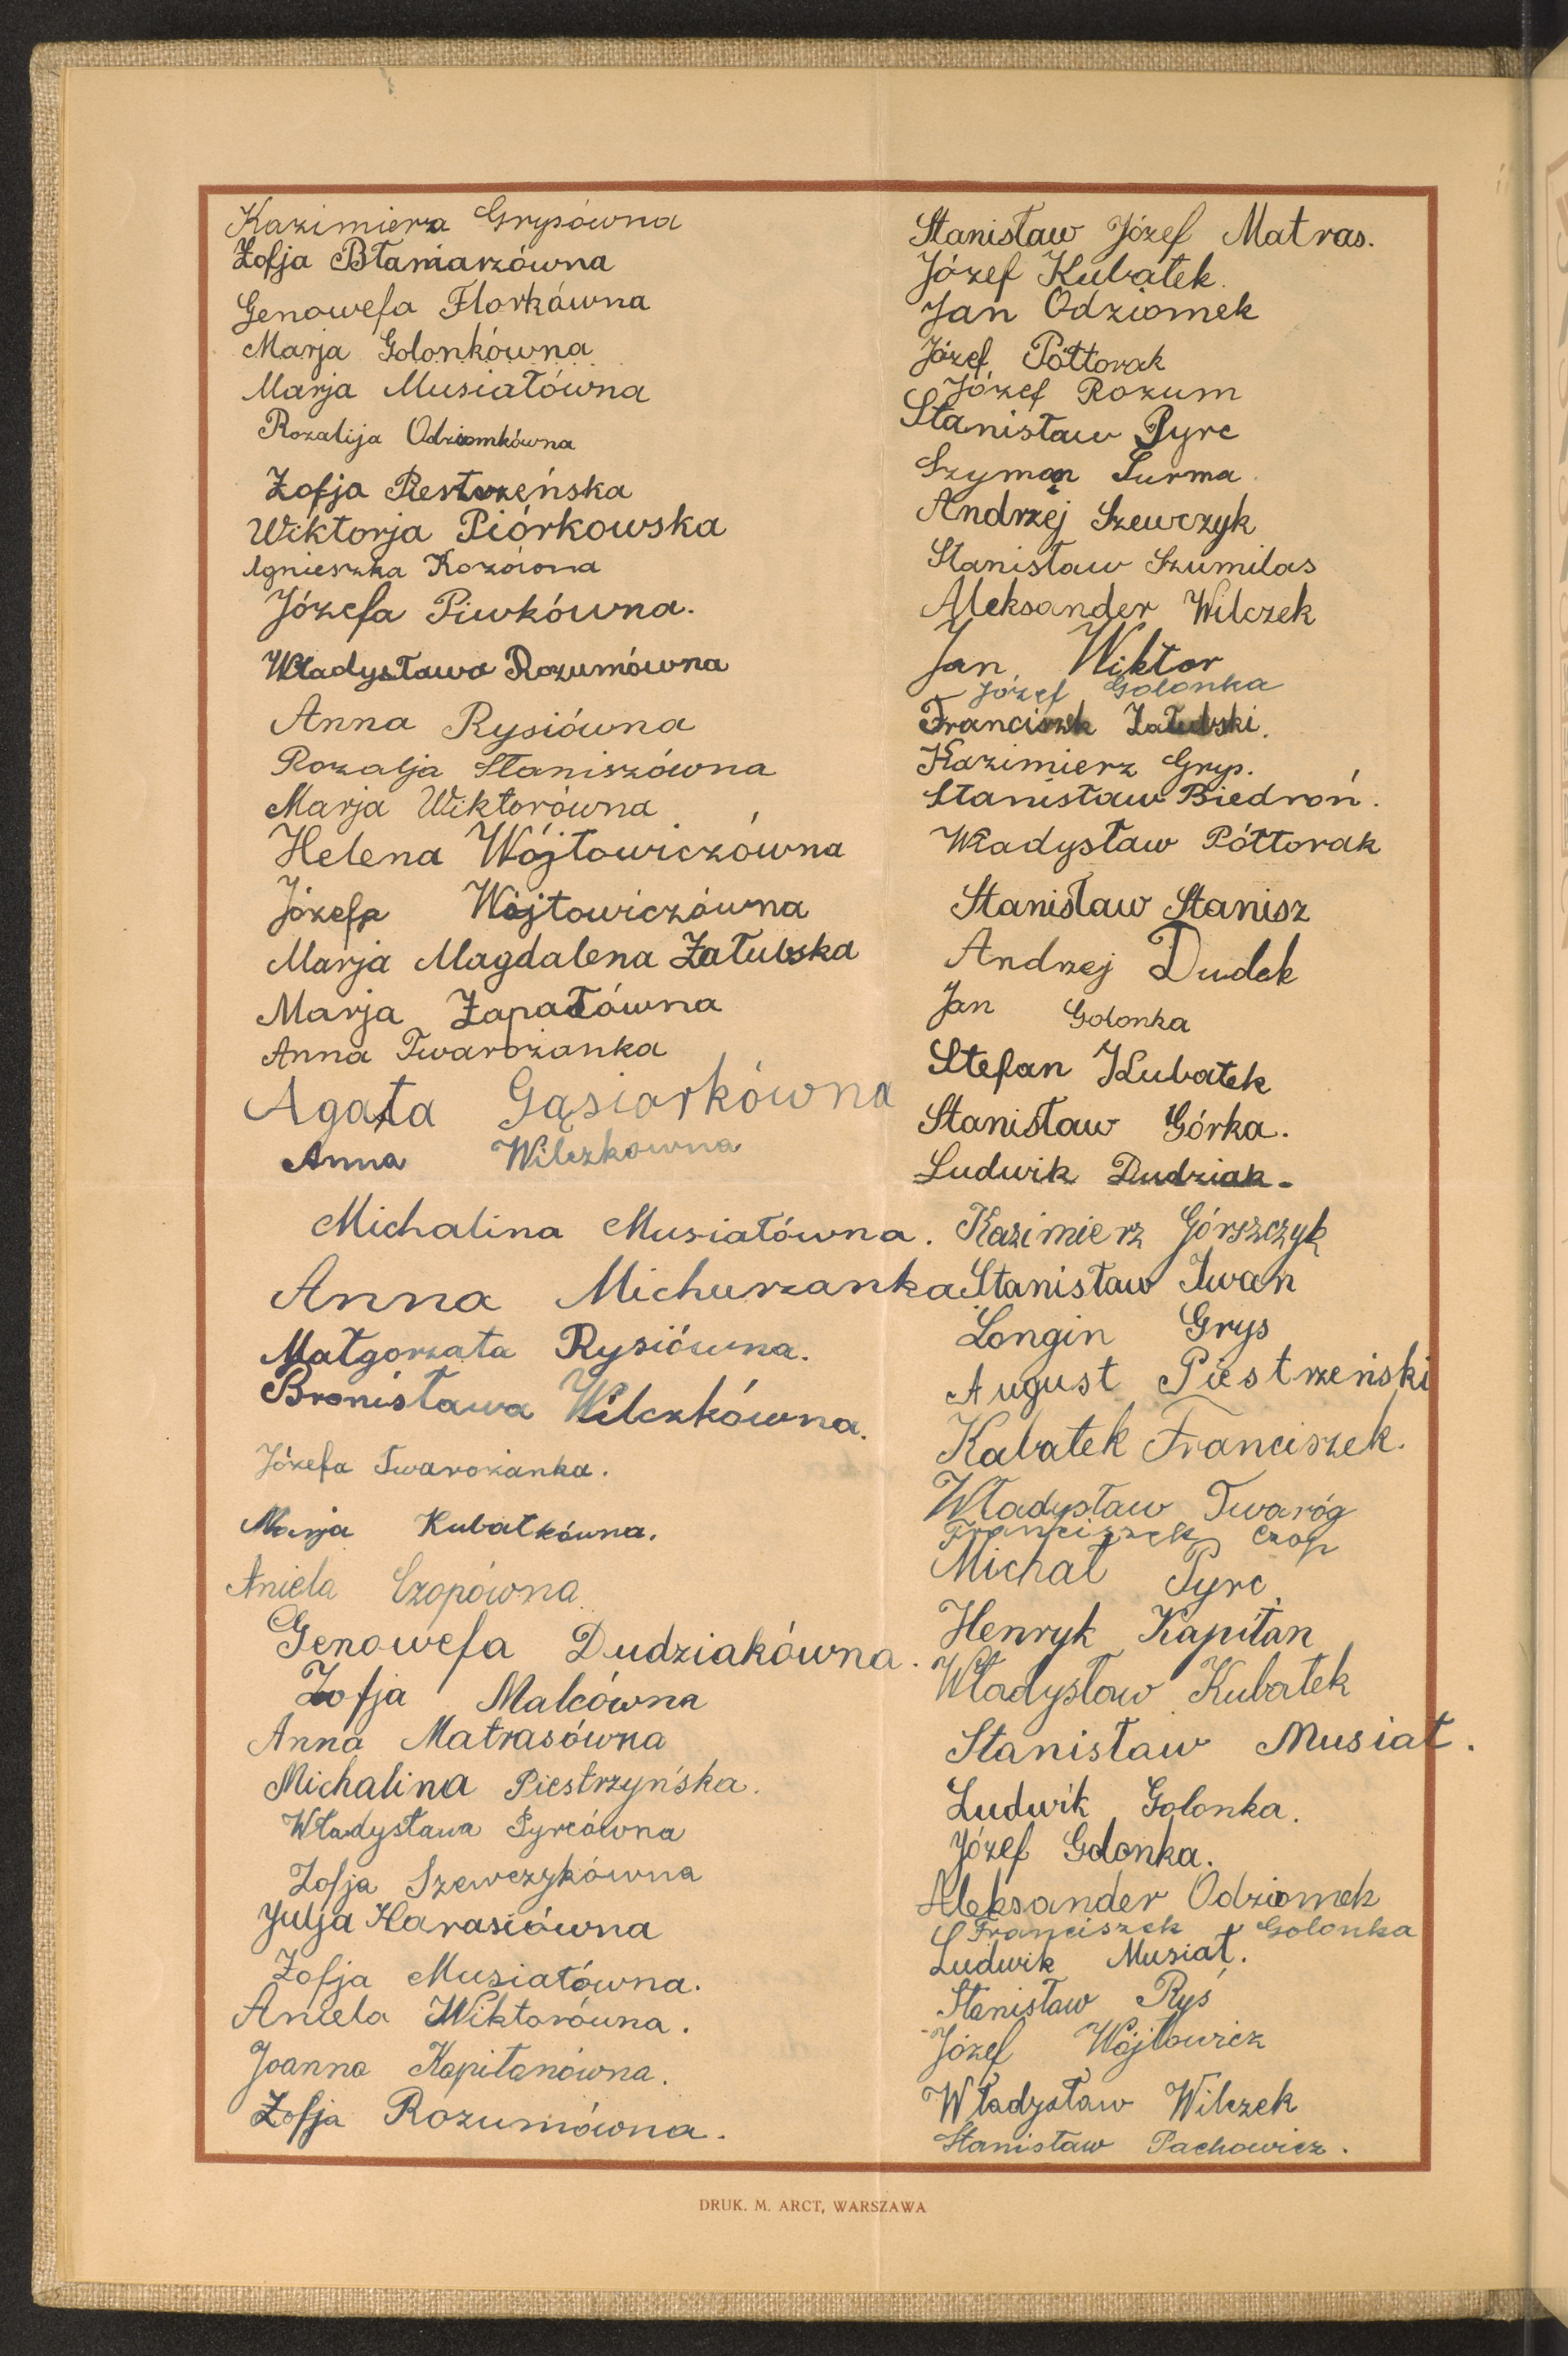 Kazimiera Grysówna
Zofja Błaniarzówna
Genowefa Florkówna
Marja Golonkówna
Marja Musiałówna
Rozalija Odziomkówna
Zofja Piestrzeńska
Wiktorja Piórkowska
Agnieszka Kozówna
Józefa Piwkówna.
Władysława Rozumówna
Anna Rysiówna
Rozalja Staniszówna
Marja Wiktorówna
Helena Wójtowiczówna
Józefa Wójtowiczówna
Marja Magdalena Załubska
Marja Zapałówna
Anna Twarożanka
Agata Gąsiorkówna
Anna Wilczkowna
Michalina Musiałówna.
Anna Michurzanka
Małgorzata Rysiówna.
Bronisława Wilczkówna.
Józefa Twarożanka.
Marja Kubatkówna.
Aniela Czopówna
Genowefa Dudziakówna.
Zofja Malcówna
Anna Matrasówna
Michalina Piestrzyńska.
Władysława Pyrcówna
Zofja Szewczykówna
Julja Harasiówna
Zofja Musiałówna.
Aniela Wiktorówna.
Joanna Kapitanówna.
Zofja Rozumówna.
Stanisław Józef Matras.
Józef Kubatek.
Jan Odziomek
Józef Półtorak
Józef Rozum
Stanisław Pyrc
Szymon Surma
Andrzej Szewczyk
Stanisław Szumilas
Aleksander Wilczek
Jan Wiktor
Józef Golonka
Franciszek Załubski.
Kazimierz Gryp.
Stanisław Biedroń.
Władysław Półtorak
Stanisław Stanisz
Andrzej Dudek
Jan Golonka
Stefan Kubatek
Stanisław Górka.
Ludwik Dudziak.
Kazimierz Górszczyk
Stanisław Iwan
Longin Grys
August Piestrzeński
Kabatek Franciszek.
Władysław Twaróg
Franciszek Czop
Michał Pyrc.
Henryk Kapitan
Władysław Kubatek
Stanisław Musiał.
Ludwik Golonka.
Józef Golonka.
Aleksander Odziomek
Franciszek Golonka
Ludwik Musiał.
Stanisław Ryś
Józef Wójtowicz
Władysław Wilczek
Stanisław Pachowicz.
DRUK. M. ARCT, WARSZAWA